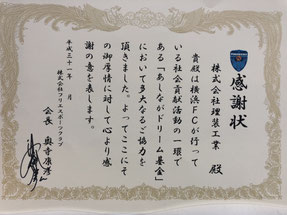 感謝状
株式会社理装工業 殿
貴殿は横浜FCが行って
いる社会貢献活動の一環で
ある「あしながドリーム基金」
において多大なるご協力を
頂きました。よってここにそ
の御厚情に対して心より感
謝の意を表します。
平成三十一年 月
株式会社フリエスポーツクラブ
会長 奥寺康彦